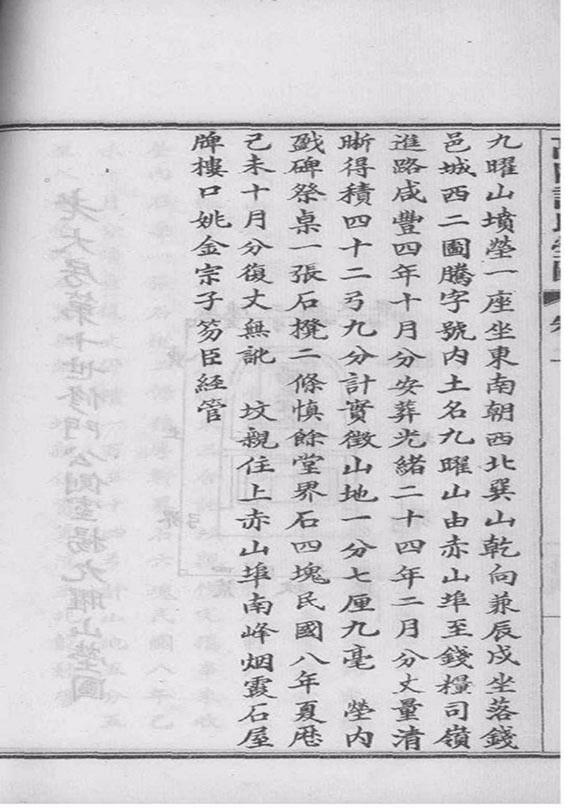 九曜山墳塋一座坐東南朝西北巽山乾向兼辰戌坐落錢
邑城西二圖騰字號內土名九曜山由赤山埠至錢糧司嶺
進路咸豐四年十月分安葬光緒二十四年二月分丈量清
晰得積四十二弓九分計實徵山地一分七厘九毫　塋內
戤碑祭桌一張石櫈二條慎餘堂界石四塊民國八年夏厯
己未十月分復丈無訛　坟親住上赤山埠南峰烟霞石屋
牌樓口姚金宗子笏臣經管